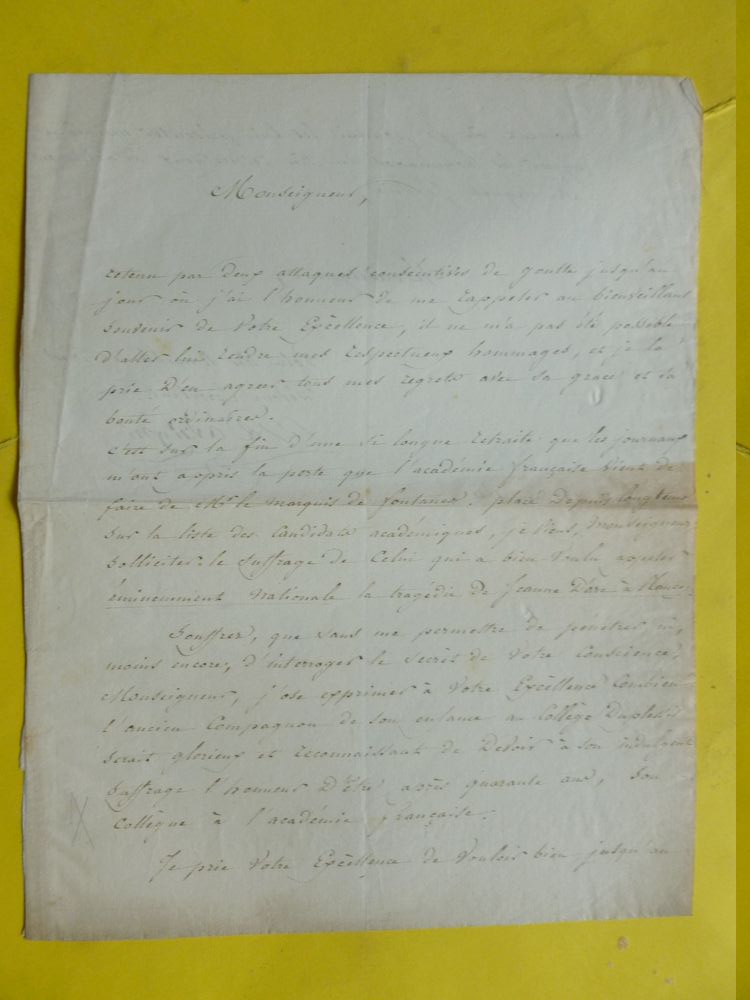 Monseigneur,
retenu par deux attaques consécutives de goutte jusqu'au
jour où j'ai l'honneur de me rappeler au bienveillant
souvenir de Votre Excellence, il ne m'a pas été possible
d'aller lui rendre mes respectueux hommages, et je la
prie d'en agréer tous mes regrets avec sa grace et sa
bonté ordinaires.
c'est sur la fin d'une si longue retraite que les journaux
m'ont appris la perte que l'académie française vient de
faire de Mr. le marquis de fontanes. placé depuis longtems
sur la liste des Candidats académiques, je viens, Monseigneur,
solliciter le suffrage de Celui qui a bien voulu appeler
éminemment nationale la tragédie de Jeanne D'arc à
Souffrez, que sans me permettre de pénétrer ni,
moins encore, d'interroger le secret de votre Conscience,
Monseigneur, j'ose exprimer à Votre Excellence Combien
l'ancien Compagnon de son enfance au Collège Duplessis
serait glorieux et reconnaissant de Devoir à son indulgent
suffrage l'honneur D'être après quarante ans, son
Collègue à l'académie française.
Je prie Votre Excellence de vouloir bien jusqu'au